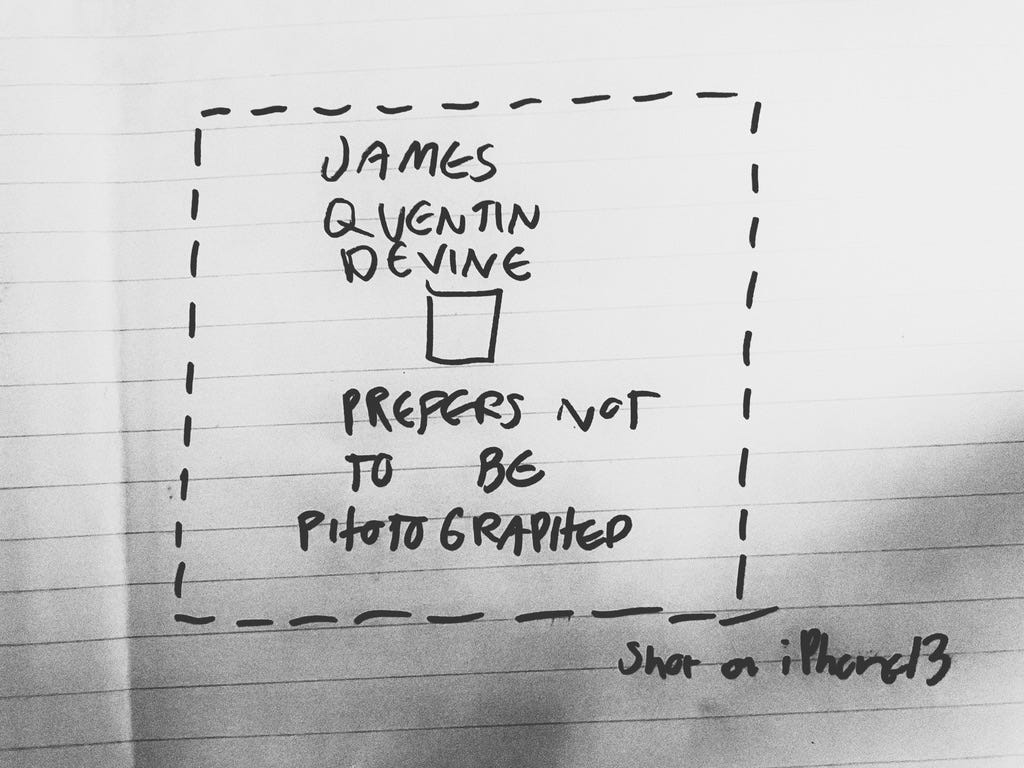 JAMES
QUENTIN
DEVINE
PREFERS NOT
TO BE
PHOTOGRAPHED
Shot on iPhone13